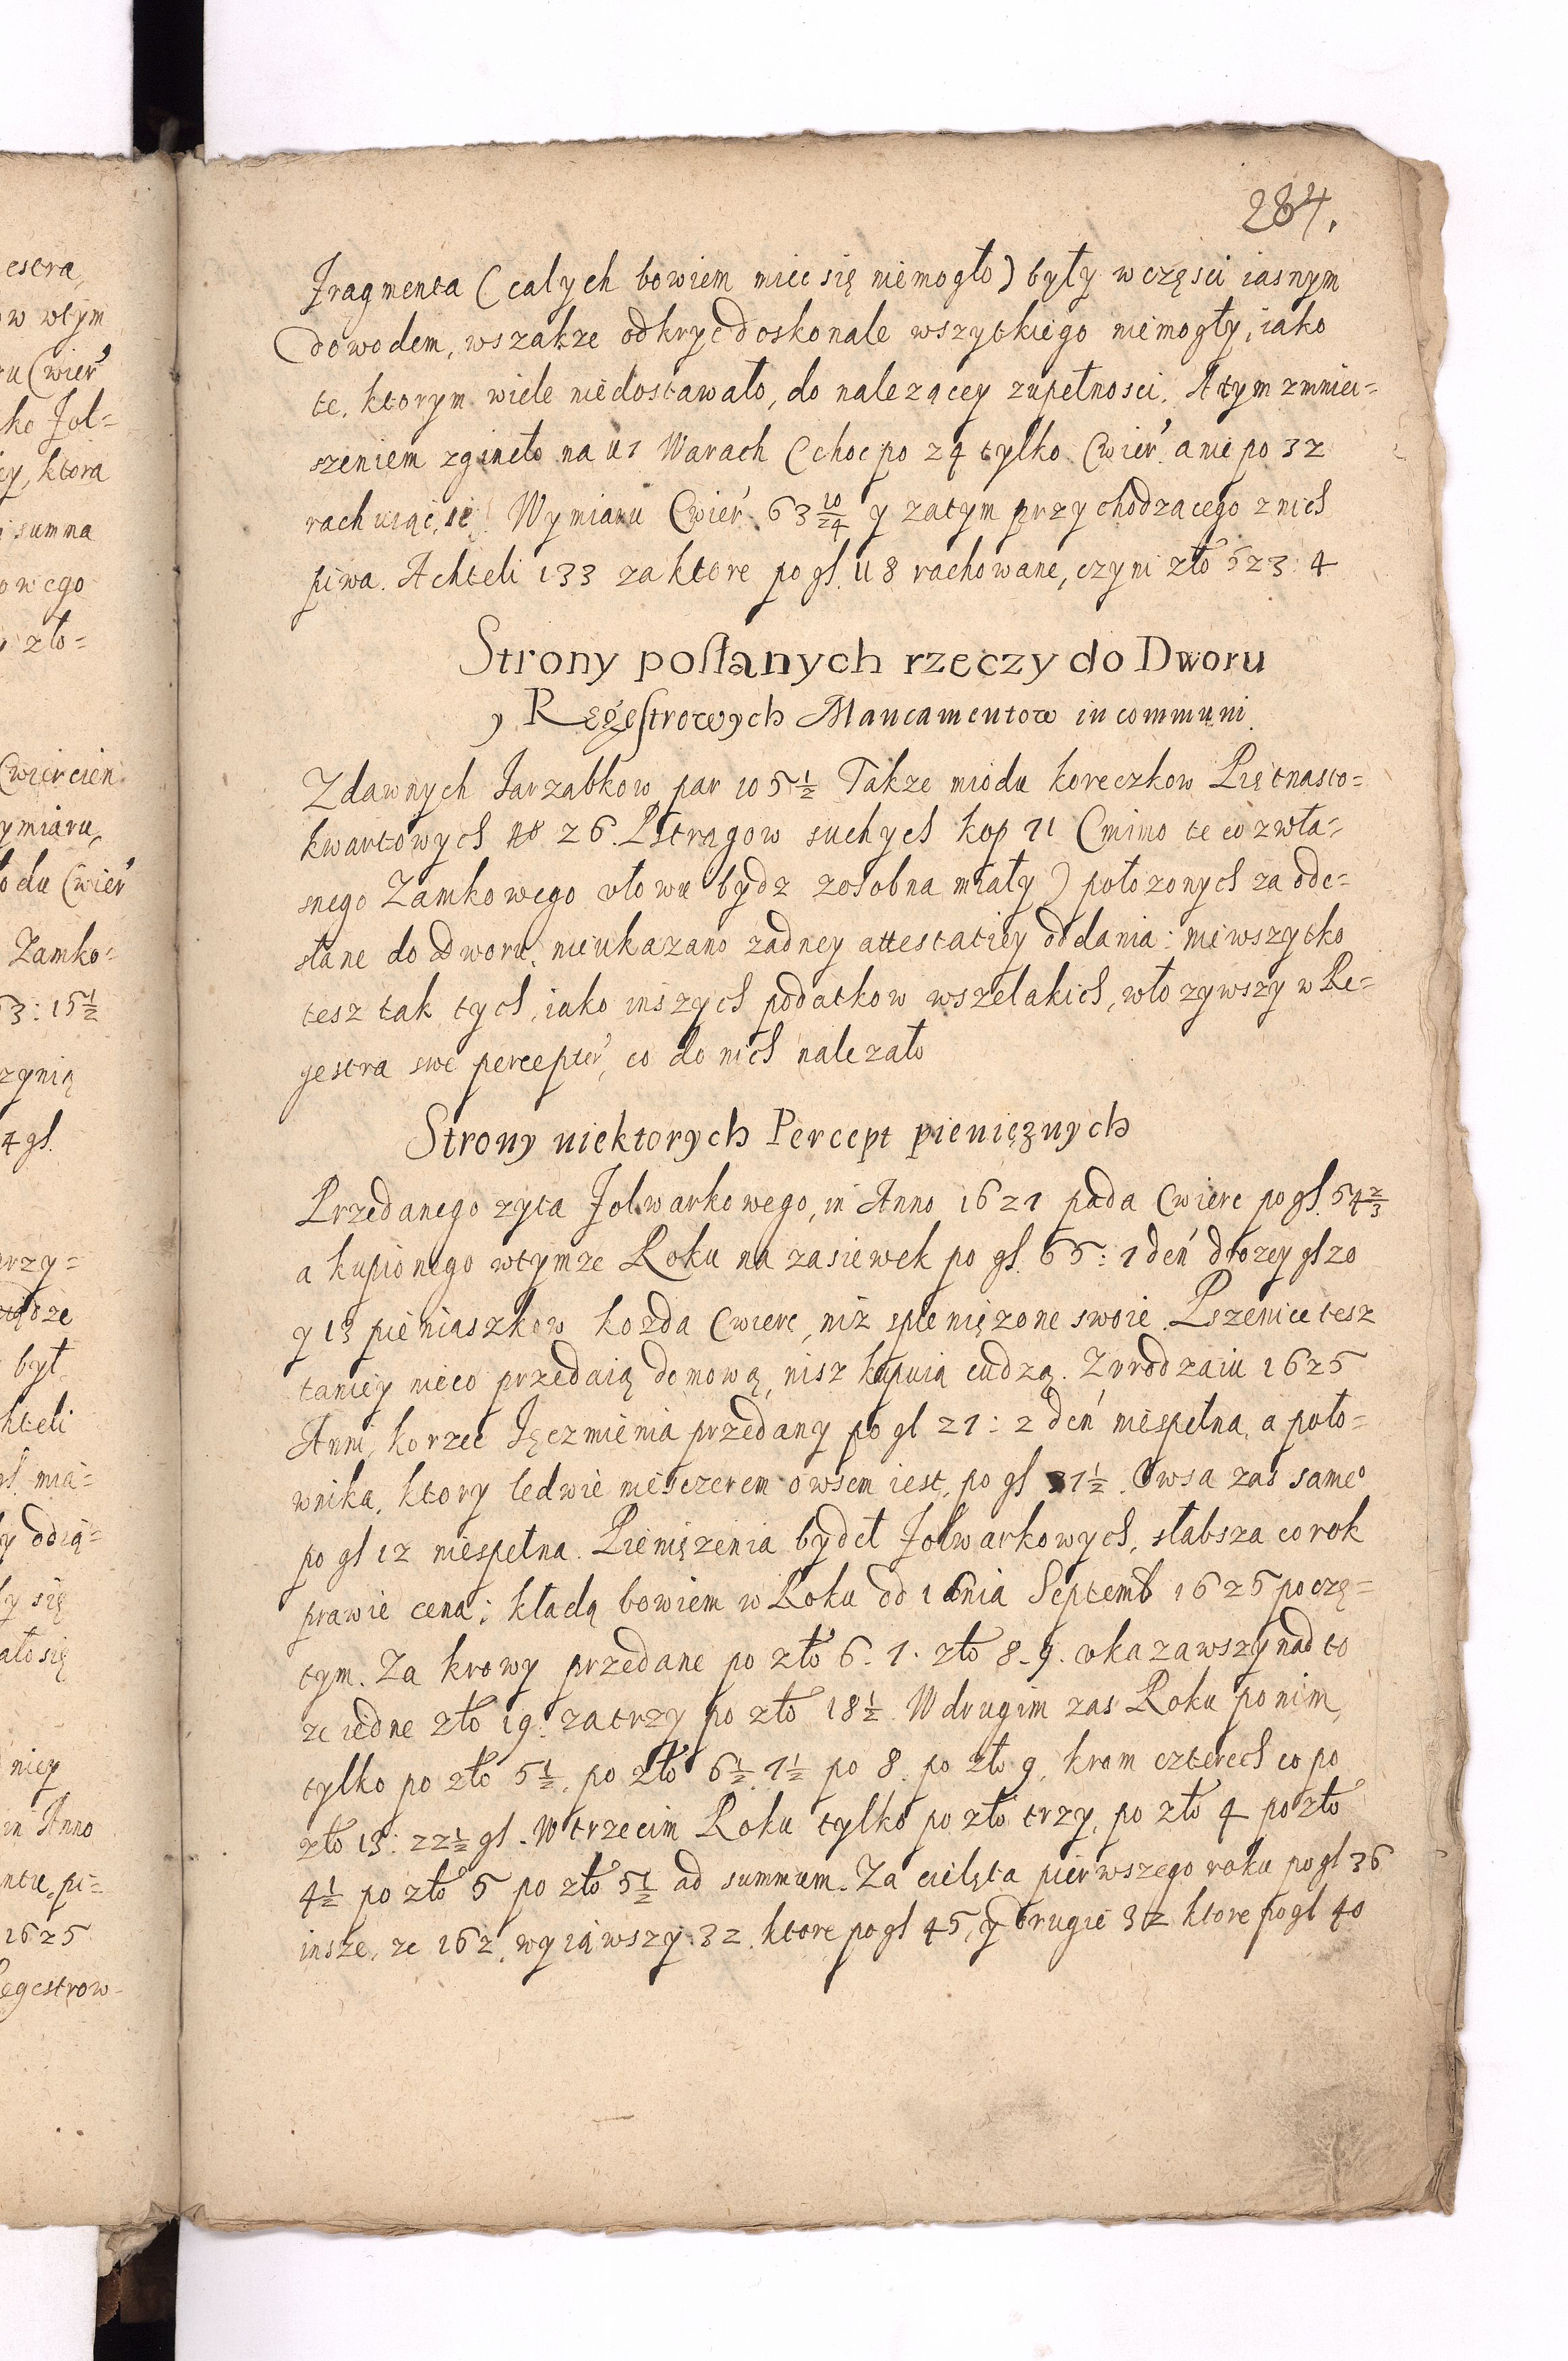 284.
Fragmenta (calych bowiem miec się niemogło) były w części iasnym
dowodem, wszakze odkryc doskonale wszytkiego niemogły, iako
te, ktorym wiele niedostawało, do nalezącey zupełnosci. A tym zmniey=
szeniem zgineło na 117 Warach (choc po 24 tylko Cwier. a nie po 32
rachuiąc, ie) Wymiaru Cwier. 63 10/24 y zatym przychodzacego z nich
piwa. Achteli 133 za ktore po gl. 118 rachowane, czyni zło 523: 4
Strony posłanych rzeczy do Dworu
y Regestrowych Mancamentow in communi
Zdawnych Jarzabkow par 105 1/2 Takze miodu koreczkow Piętnasto=
kwartowych no 26. Pstrągow suchych kop 71 (mimo te co z wła=
snego Zamkowego ułowu bydz zosobna miały) położonych za ode=
słane do Dworu, nieukazano zadney attestatiey oddania: niewszytko
tesz tak tych, iako inszych podatkow wszelakich, włozywszy w Re=
gestra swe percepter, co do nich nalezało
Strony niektorych Percept pieniężnych
Przedanego zyta folwarkowego, in Anno 1627 pada Cwierc po gl. 54 2/3
a kupionego wtymze Roku na zasiewek po gl. 65: 7 den drozey gl 20
y 13 pieniaszkow kozda Cwierc, niz spieniężone swoie. Pszenice tesz
taniey nieco przedaią domową, nisz kupuią cudzą. Zvrodzaiu 1625
Anni, korzec Jęczmienia przedany po gl 27: 2 den niespełna, a poło=
wnika, ktory ledwie nieszczerem owsem iest, po gl 37 1/2. Owsa zas same°
po gl 12 niespełna. Pieniężenia bydeł folwarkowych, słabsza co rok
prawie cena; kładą bowiem w Roku od 1 dnia Septemb 1625 poczę=
tym. Za krowy przedane po zło 6. 7. zło 8. 9. okazawszy nad to
ze iedne zło 19. za trzy po zło 18 1/2. W drugim zas Roku po nim,
tylko po zło 5 1/2. po zło 6 1/2. 7 1/2 po 8. po zło 9. krom czterech co po
zło 13: 22 1/2 gl. W trzecim Roku tylko po zło trzy, po zło 4 po zło
4 1/2 po zło 5 po zło 5 1/2 ad summum. Za cielęta pierwszego roku po gl 36
insze, ze 162. wyiąwszy 32. ktore po gl 45, y drugie 32 ktore po gl 40